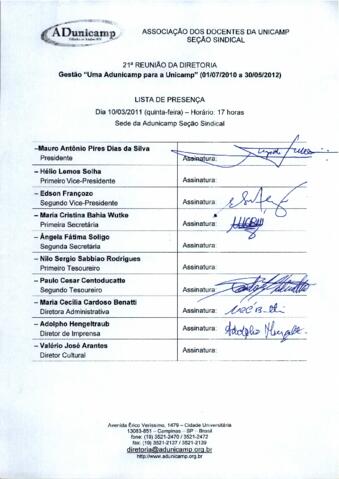 ADunicamp
ASSOCIAÇÃO DOS DOCENTES DA UNICAMP
SEÇÃO SINDICAL
21ª REUNIÃO DA DIRETORIA
Gestão "Uma Adunicamp para a Unicamp" (01/07/2010 a 30/05/2012)
LISTA DE PRESENÇA
Dia 10/03/2011 (quinta-feira) – Horário: 17 horas
Sede da Adunicamp Seção Sindical
–Mauro Antônio Pires Dias da Silva
Presidente Assinatura:
– Hélio Lemos Solha
Primeiro Vice-Presidente Assinatura:
– Edson Françozo
Segundo Vice-Presidente Assinatura:
– Maria Cristina Bahia Wutke
Primeira Secretária Assinatura:
– Ângela Fátima Soligo
Segunda Secretária Assinatura:
– Nilo Sergio Sabbião Rodrigues
Primeiro Tesoureiro Assinatura:
– Paulo Cesar Centoducatte
Segundo Tesoureiro Assinatura:
– Maria Cecília Cardoso Benatti
Diretora Administrativa Assinatura:
– Adolpho Hengeltraub
Diretor de Imprensa Assinatura: Adolpho
– Valério José Arantes
Diretor Cultural Assinatura:
Avenida Érico Veríssimo, 1479 – Cidade Universitária
13083-851 – Campinas – SP – Brasil
fone: (19) 3521-2470 / 3521-2472
fax: (19) 3521-2137 / 3521-2139
diretoria@adunicamp.org.br
http://www.adunicamp.org.br